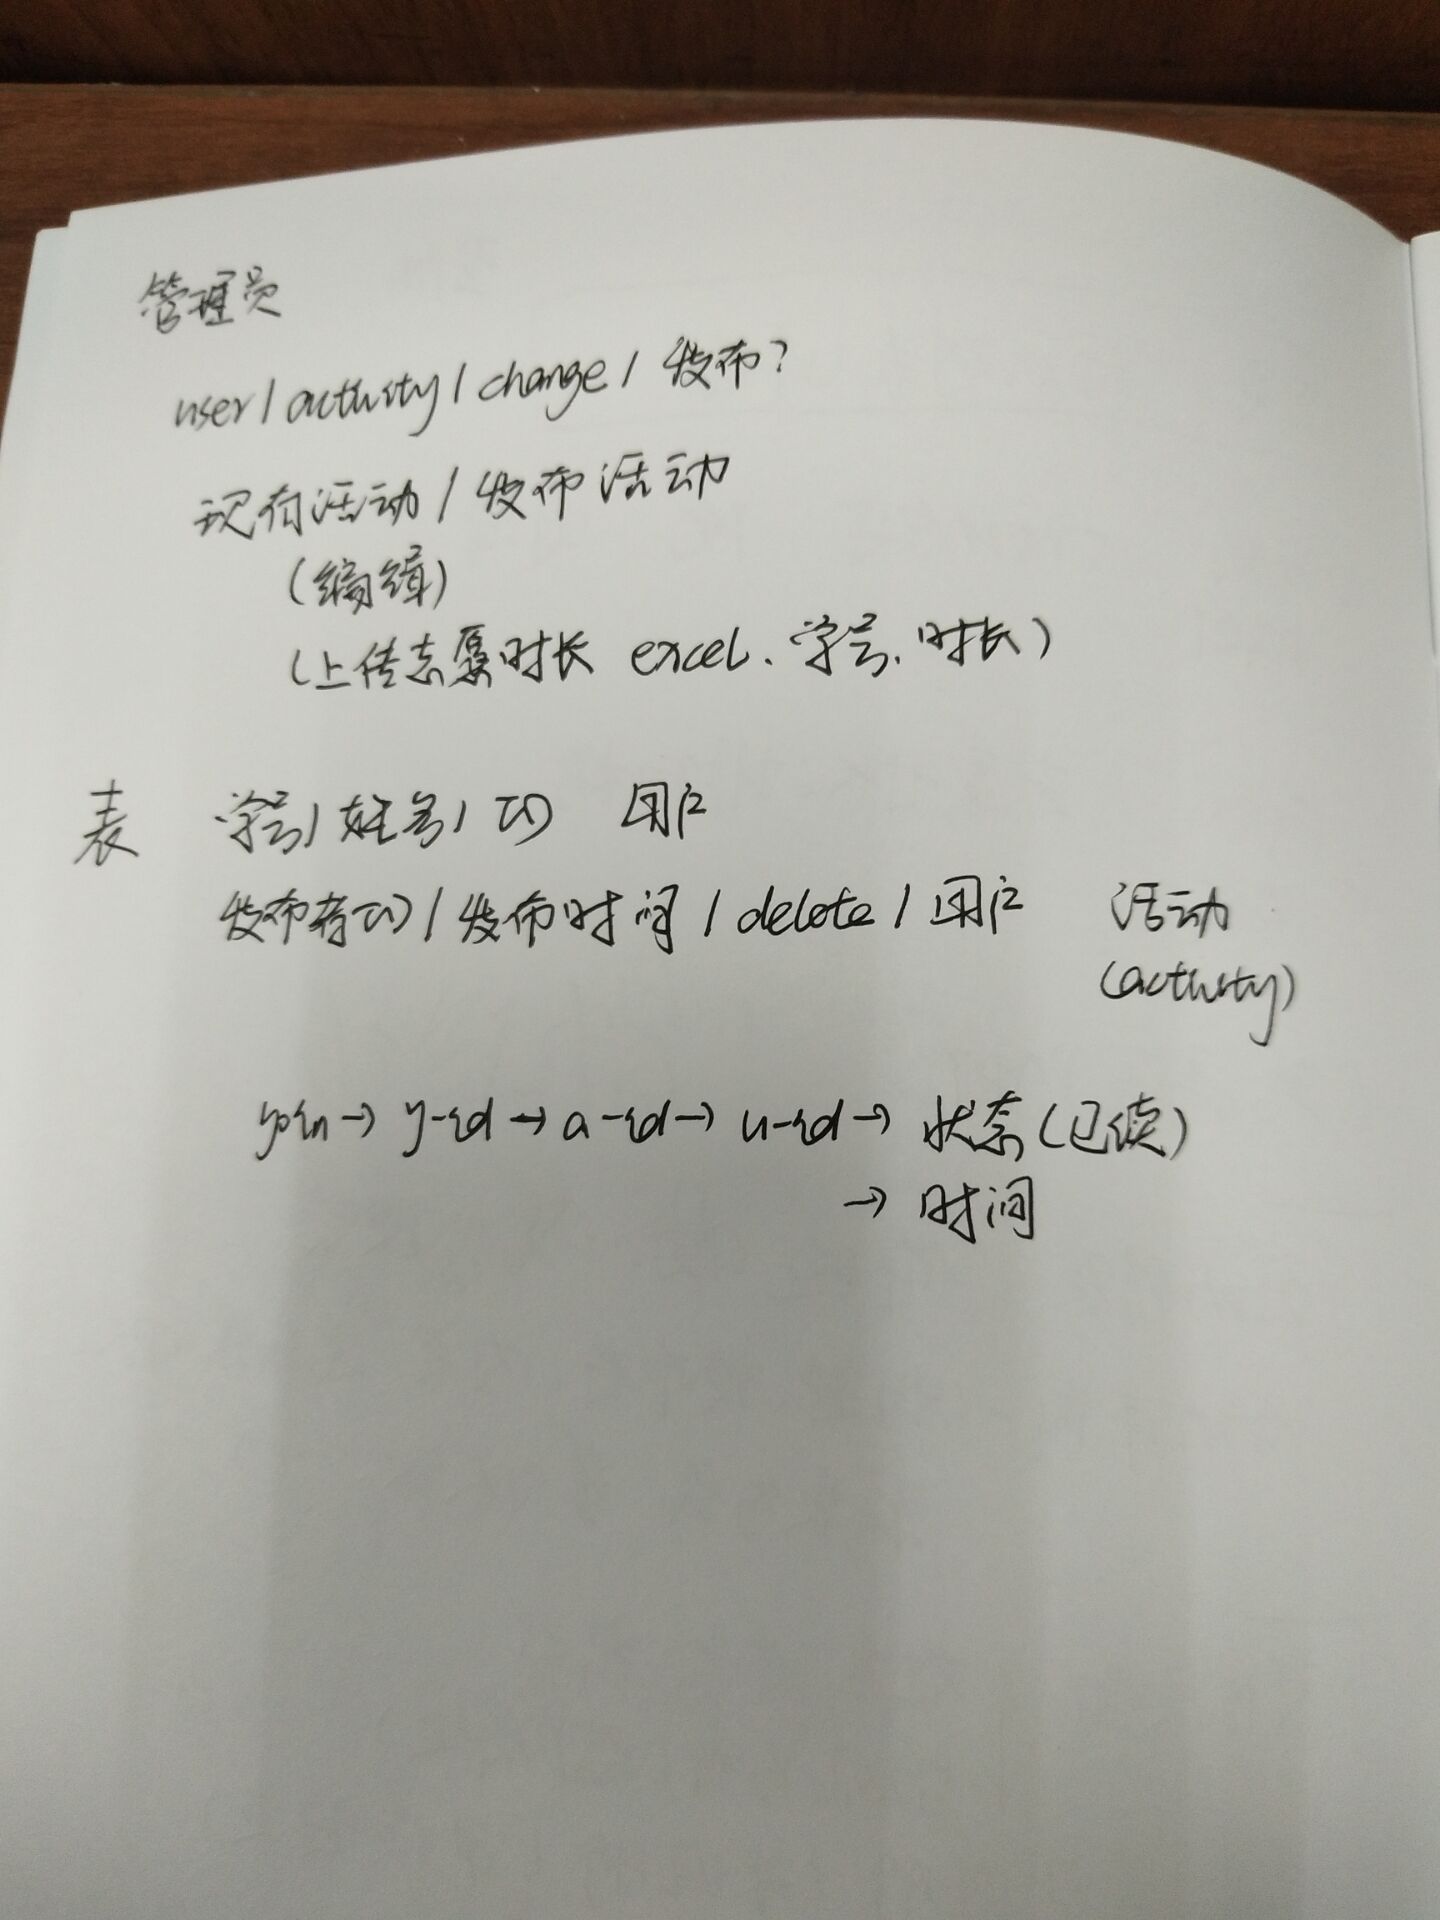 管理员
user/activity/change/发布?
现有活动/发布活动
(编辑)
(上传志愿时长 excel、学号、时长)
表 学号/姓名/ID 用户
发布者ID/发布时间/delete/用户 活动
(activity)
→ y-id → a-id → u-id → 状态(已读)
→ 时间